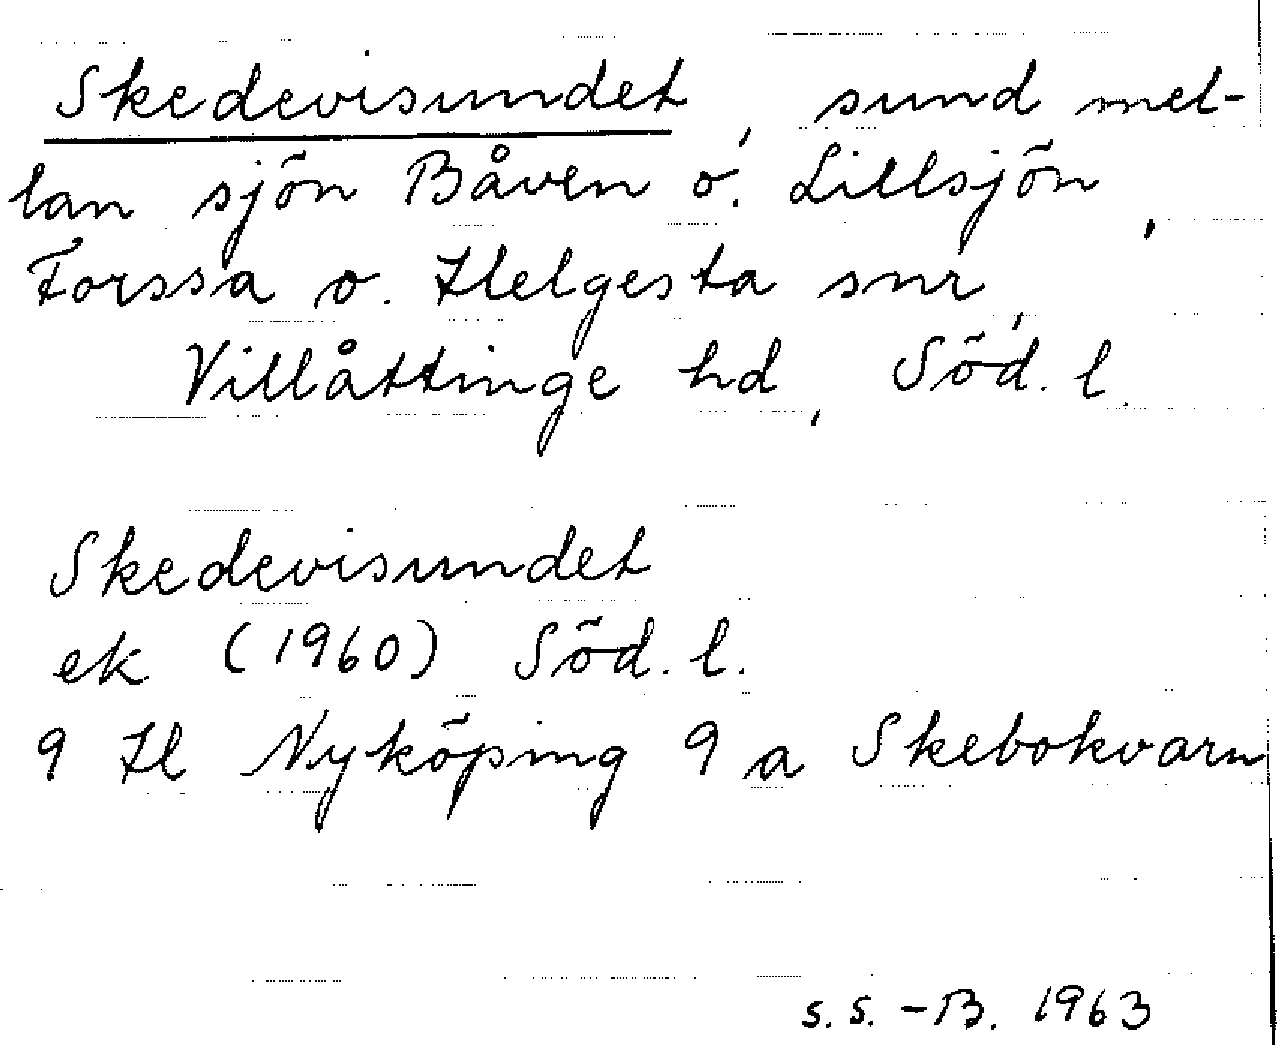 Skedevisundet, sund mel-
lan sjön Båven o. Lillsjön,
Forssa o. Helgesta snr,
Villåttinge hd, Söd. l.
Skedevisundet
ek (1960) Söd. l.
9 H Nyköping 9 a Skebokvarn
S. S. -B. 1963